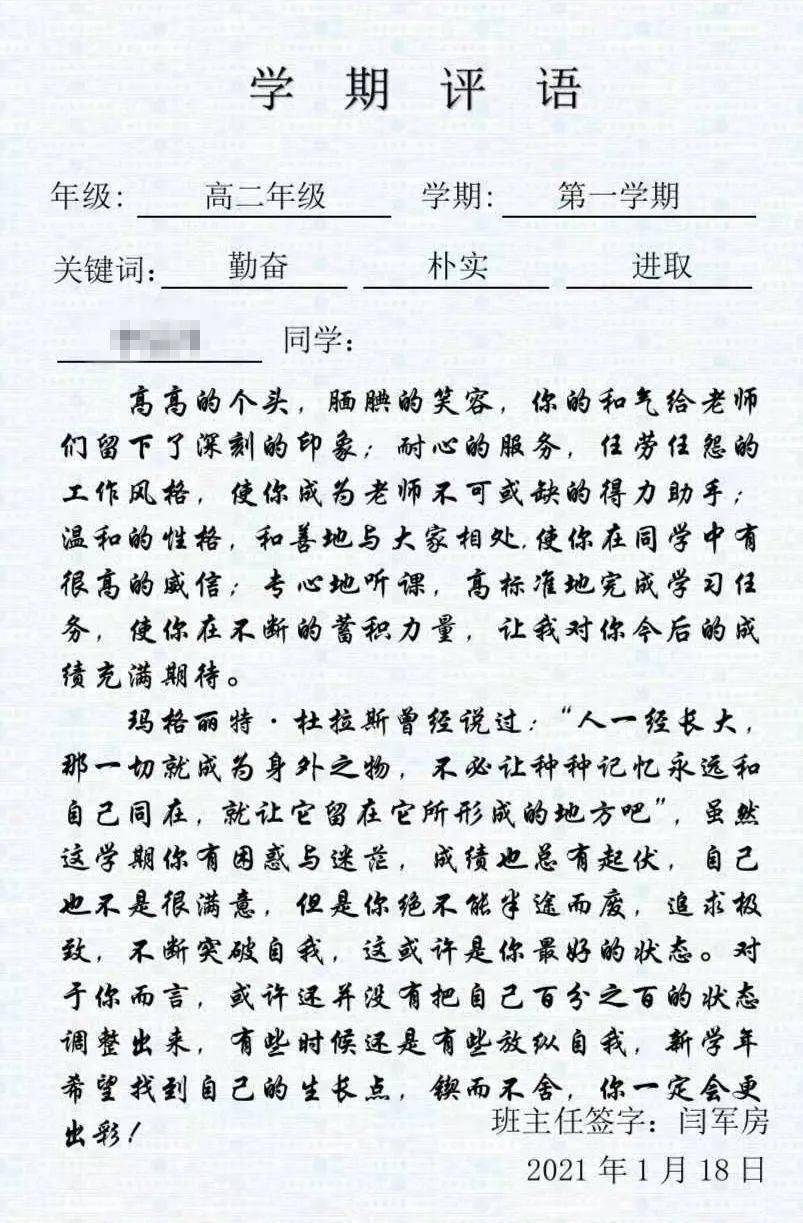 学期评语
年级：高二年级 学期：第一学期
关键词：勤奋 朴实 进取
同学：
高高的个头，腼腆的笑容，你的和气给老师
们留下了深刻的印象；耐心的服务，任劳任怨的
工作风格，使你成为老师不可或缺的得力助手；
温和的性格，和善地与大家相处,使你在同学中有
很高的威信；专心地听课，高标准地完成学习任
务，使你在不断的蓄积力量，让我对你今后的成
绩充满期待。
玛格丽特·杜拉斯曾经说过：“人一经长大，
那一切就成为身外之物，不必让种种记忆永远和
自己同在，就让它留在它所形成的地方吧”，虽然
这学期你有困惑与迷茫，成绩也总有起伏，自己
也不是很满意，但是你绝不能半途而废，追求极
致，不断突破自我，这或许是你最好的状态。对
于你而言，或许还并没有把自己百分之百的状态
调整出来，有些时候还是有些放纵自我，新学年
希望找到自己的生长点，锲而不舍，你一定会更
出彩！
班主任签字：闫军房
2021年1月18日